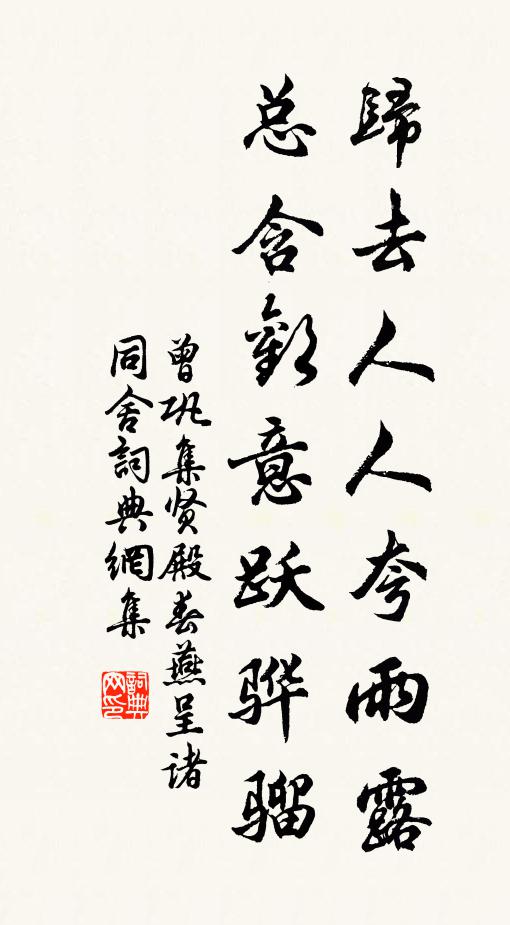 歸去人人夸雨露
总含歡意跃骅骝
曾巩集贤殿春燕呈诸
同舍詞典網集
詞典
网印